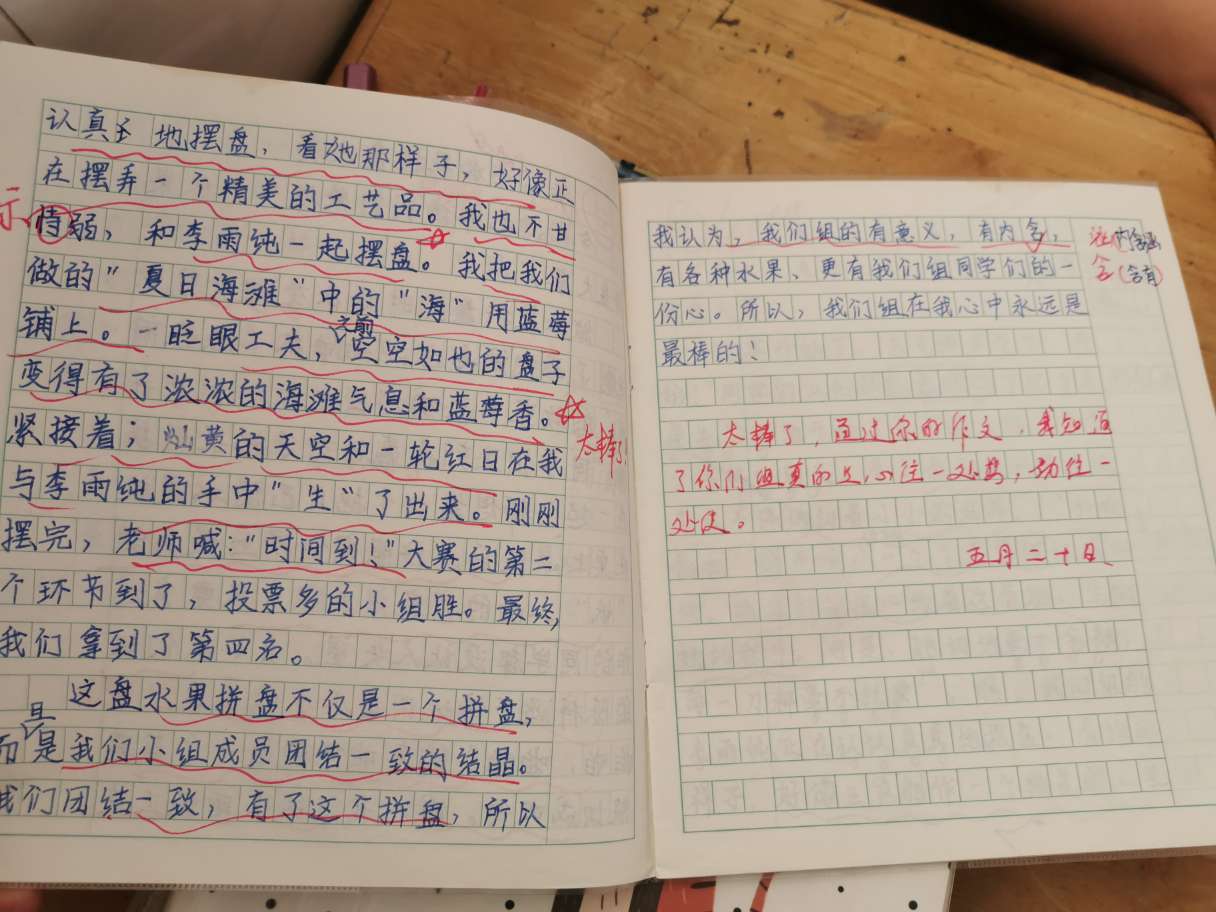 认真地摆盘，看她那样子，好像正
在摆弄一个精美的工艺品。我也不甘
示
恃弱，和李雨纯一起摆盘。我把我们
做的"夏日海滩"中的"海"用蓝莓
铺上。一眨眼工夫，之前空空如也的盘子
变得有了浓浓的海滩气息和蓝莓香。
太棒了!
紧接着；灿黄的天空和一轮红日在我
与李雨纯的手中"生"了出来。刚刚
摆完，老师喊："时间到!"大赛的第二
个环节到了，投票多的小组胜。最终，
我们拿到了第四名。
这盘水果拼盘不仅是一个拼盘，
而且是我们小组成员团结一致的结晶。
我们团结一致，有了这个拼盘，所以
我认为，我们组的有意义，有内含，
内涵
有各种水果、更有我们组同学们的一
含(含有)
份心。所以，我们组在我心中永远是
最棒的!
太棒了，通过你的作文，我知道
了你们组真的是心往一处想，劲往一
处使。
五月二十日